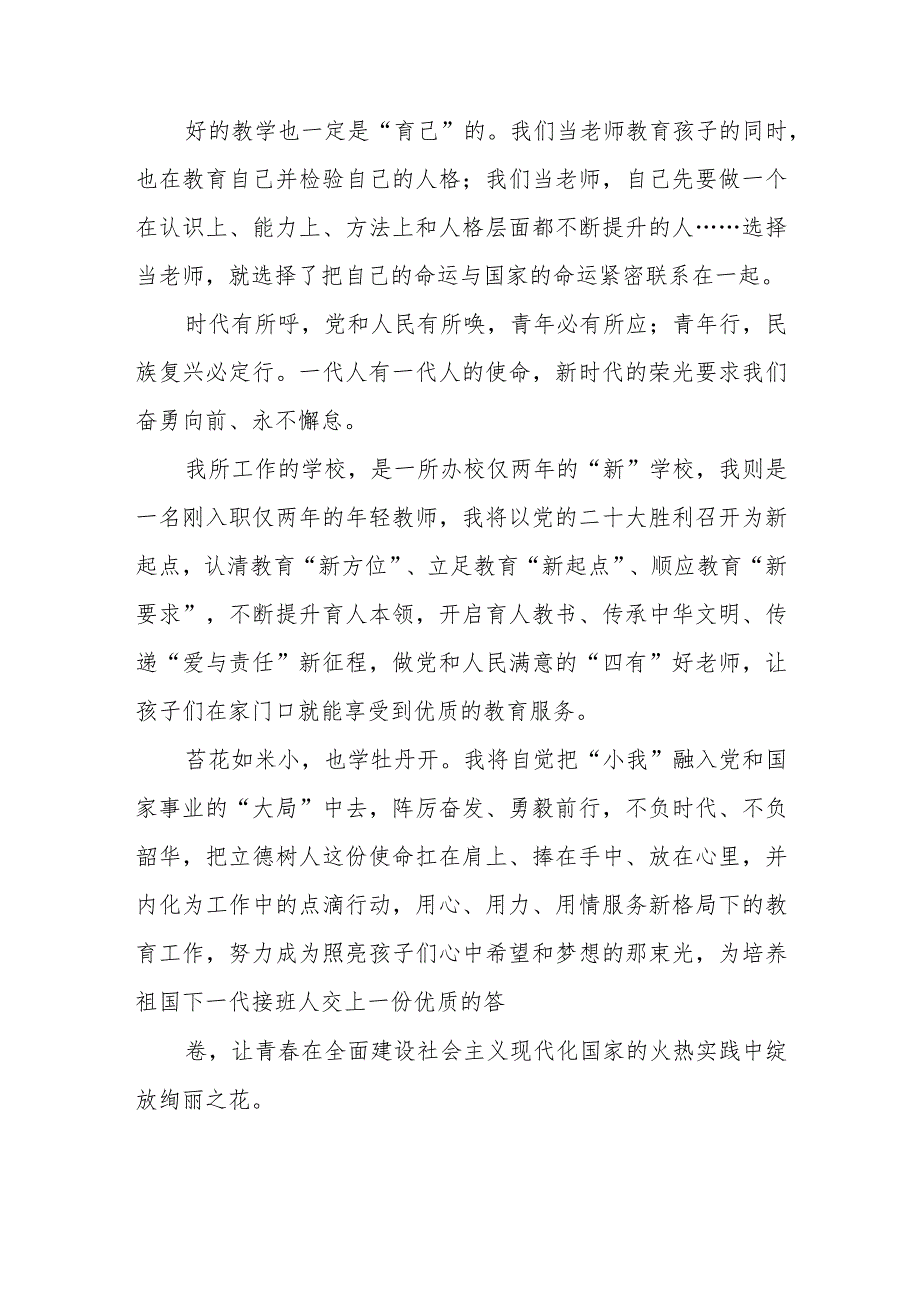 好的教学也一定是“育己”的。我们当老师教育孩子的同时，
也在教育自己并检验自己的人格；我们当老师，自己先要做一个
在认识上、能力上、方法上和人格层面都不断提升的人……选择
当老师，就选择了把自己的命运与国家的命运紧密联系在一起。
时代有所呼，党和人民有所唤，青年必有所应；青年行，民
族复兴必定行。一代人有一代人的使命，新时代的荣光要求我们
奋勇向前、永不懈怠。
我所工作的学校，是一所办校仅两年的“新”学校，我则是
一名刚入职仅两年的年轻教师，我将以党的二十大胜利召开为新
起点，认清教育“新方位”、立足教育“新起点”、顺应教育“新
要求”，不断提升育人本领，开启育人教书、传承中华文明、传
递“爱与责任”新征程，做党和人民满意的“四有”好老师，让
孩子们在家门口就能享受到优质的教育服务。
苔花如米小，也学牡丹开。我将自觉把“小我”融入党和国
家事业的“大局”中去，阵厉奋发、勇毅前行，不负时代、不负
韶华，把立德树人这份使命扛在肩上、捧在手中、放在心里，并
内化为工作中的点滴行动，用心、用力、用情服务新格局下的教
育工作，努力成为照亮孩子们心中希望和梦想的那束光，为培养
祖国下一代接班人交上一份优质的答
卷，让青春在全面建设社会主义现代化国家的火热实践中绽
放绚丽之花。